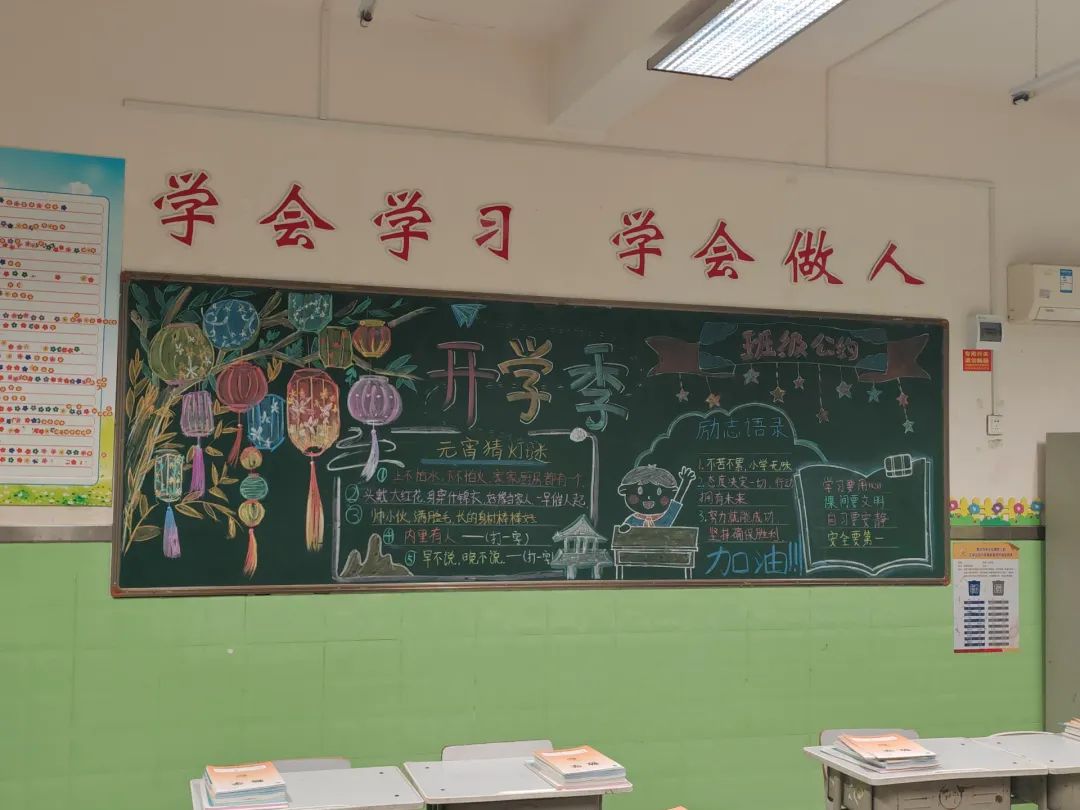 学会学习 学会做人
开学季
班级公约
元宵猜灯谜
① 上不怕水,下不怕火,家家厨房都有个
② 头戴大红花,身穿什锦衣,好像当家人,一早催人起
③ 帅小伙,满脸毛,长的身材棒棒
④ 内里有人——(打一字)
⑤ 早不说,晚不说——(打一字
励志语录
1.不苦不累,小学无味
2.态度决定一切,行动
拥有未来
3.努力就能成功
坚持确保胜利
加油!!!
学习要用心
课间要文明
自习要安静
安全要第一